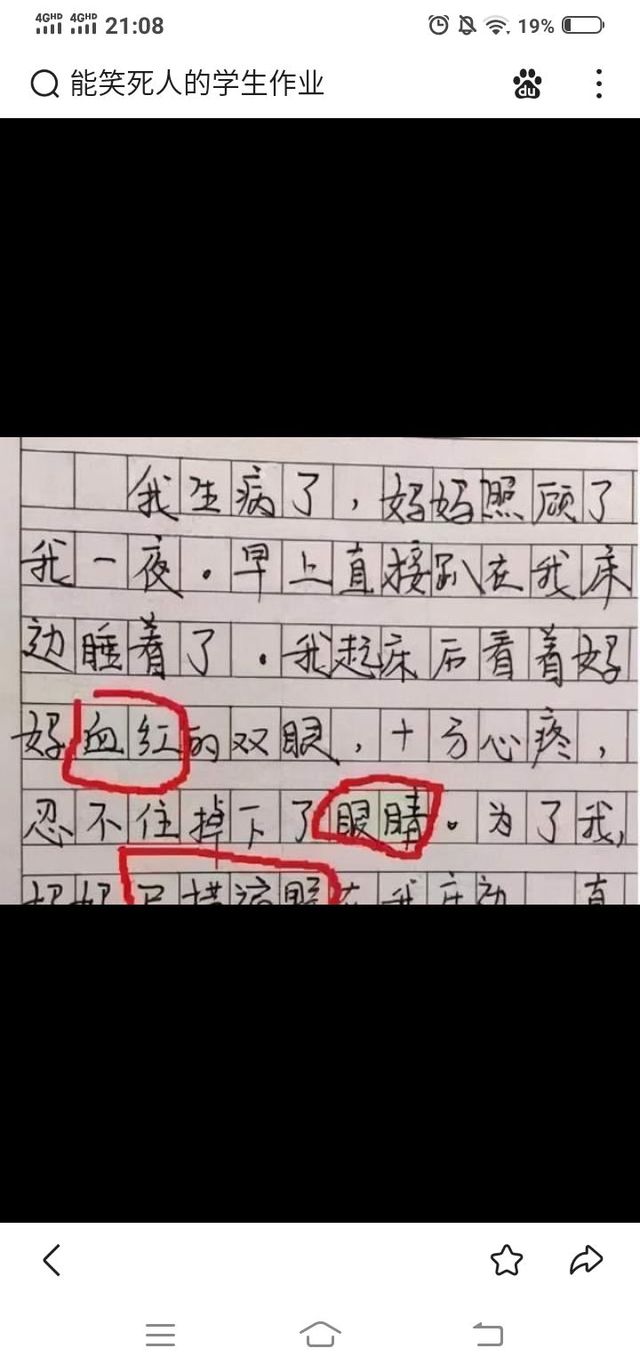 4GHD 4GHD 21:08 19%
能笑死人的学生作业
du
我生病了，妈妈照顾了
我一夜．早上直接趴在我床
边睡着了．我起床后看着妈
妈血红的双眼，十分心疼，
忍不住掉下了眼睛。为了我，
妈妈 在我床边 直